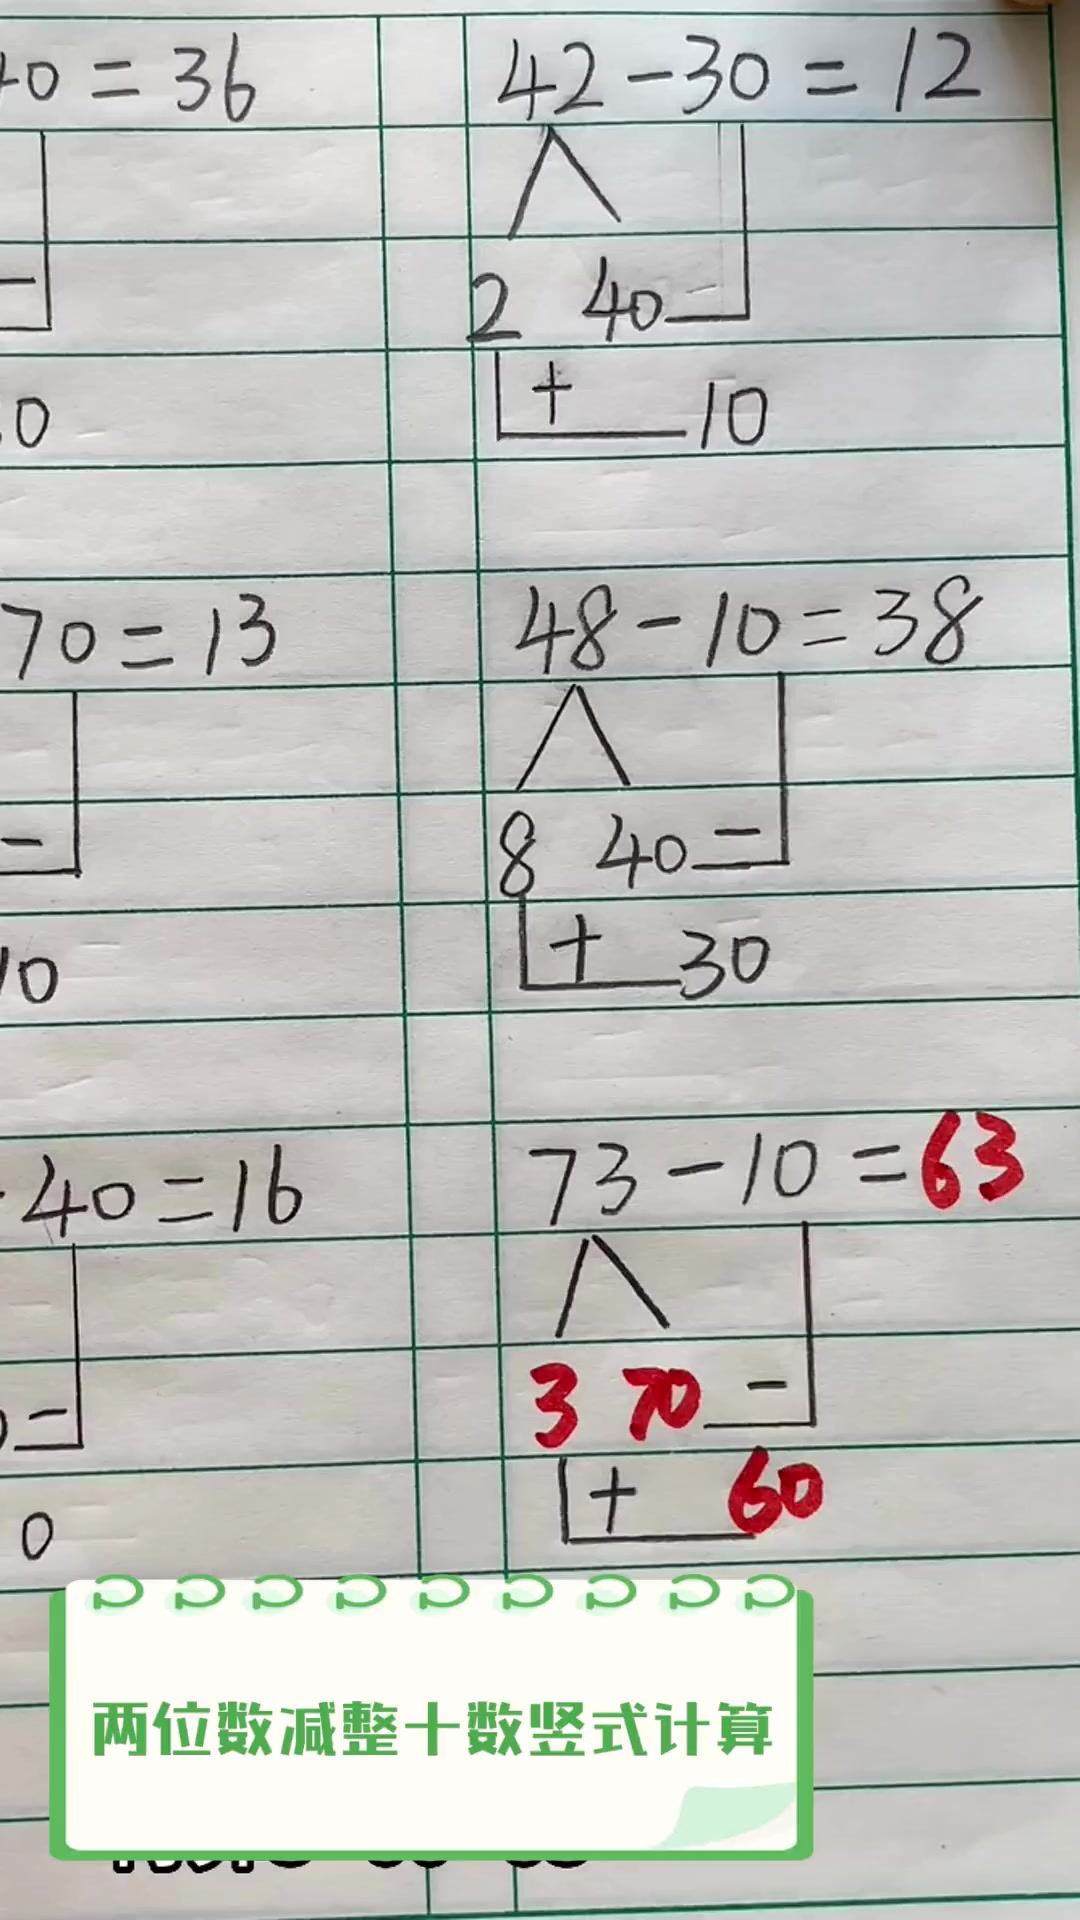 40=36
42-30=12
2 40
+ 10
0
70=13
48-10=38
-
8 40 -
10
+ 30
40=16
73-10=63
-
3 70 -
+ 60
0
两位数减整十数竖式计算